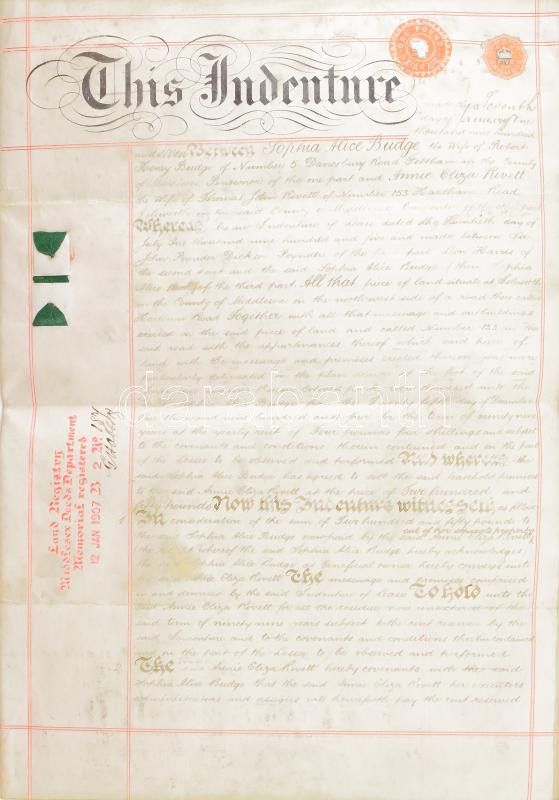 This Indenture
ONE POUND
FIVE
made the Seventh
day of January One
thousand nine hundred
and seven Between Sophia Alice Budge the Wife of Robert
Henry Budge of Number 5 Danesbury Road Feltham in the County
of Middlesex of the one part and Annie Eliza Rivett
the Wife of Thomas John Rivett of Number 153 Hartham Road
Isleworth in the said County of Middlesex of the other part
Whereas by an Indenture of Lease dated the day of
July One thousand nine hundred and five and made between Sir
John Poynder Dickson Poynder of the part Harris of
the second part and the said Sophia Alice Budge then Sophia
Alice of the third part All that piece of land situate at Isleworth
in the County of Middlesex on the northwest side of a road there called
Hartham Road Together with all that messuage and outbuildings
erected on the said piece of land and called Number 153 in the
said road with the appurtenances thereof which said piece of
land with the messuage and premises erected thereon was more
particularly delineated in the plan drawn the foot of the said
day of December
One thousand nine hundred and five for the term of ninety nine
years at the yearly rent of Four pounds four shillings and subject
to the covenants and conditions therein contained and on the part
of the Lessee to be observed and performed And whereas the
said Sophia Alice Budge has agreed to sell the said leasehold
to the said Annie Eliza Rivett at the price of Five hundred and
fifty pounds Now this Indenture witnesseth as follows
1 In consideration of the sum of Five hundred and fifty pounds to
out of her
the said Sophia Alice Budge now paid by the said Annie Eliza Rivett
the receipt whereof the said Sophia Alice Budge hereby acknowledges
the said Sophia Alice Budge as beneficial owner hereby conveys unto
the said Annie Eliza Rivett The messuage and premises comprised
in and demised by the said Indenture of Lease To hold unto the
said Annie Eliza Rivett for all the residue now unexpired of the
said term of ninety nine years subject to the rent reserved by the
said Indenture and to the covenants and conditions therein contained
and on the part of the Lessee to be observed and performed
2 The said Annie Eliza Rivett hereby covenants with the said
Sophia Alice Budge that the said Annie Eliza Rivett her executors
administrators and assigns will henceforth pay the rent reserved
Land Registry
Middlesex Deeds Department
Memorial registered
12 JAN 1907 B 2 No
darabanth